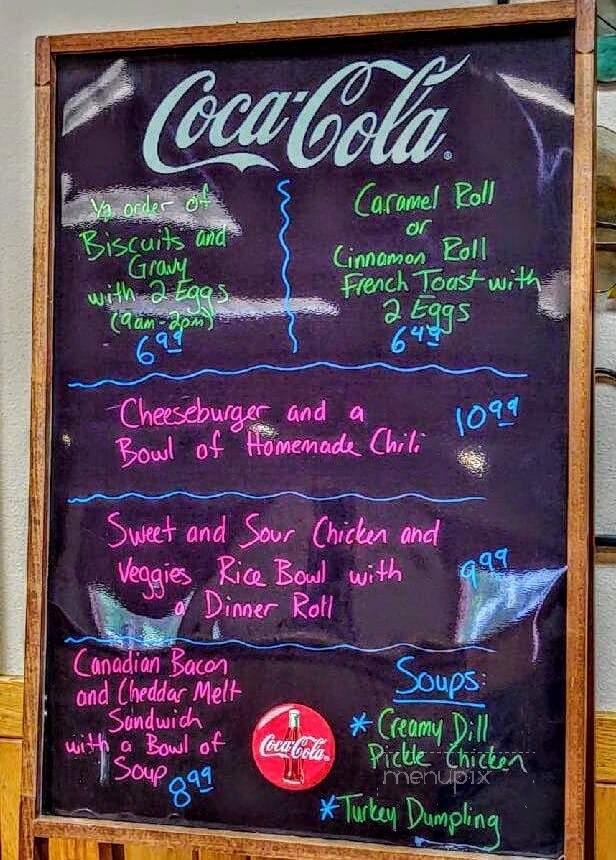 Coca-Cola
1/2 order of
Biscuits and
Gravy
with 2 Eggs
(9am-2pm)
6.99
Caramel Roll
or
Cinnamon Roll
French Toast with
2 Eggs
6.49
Cheeseburger and a
Bowl of Homemade Chili
10.99
Sweet and Sour Chicken and
Veggies Rice Bowl with
a Dinner Roll
9.99
Canadian Bacon
and Cheddar Melt
Sandwich
with a Bowl of
Soup
8.99
Coca-Cola
Soups:
* Creamy Dill
Pickle Chicken
menupix
* Turkey Dumpling